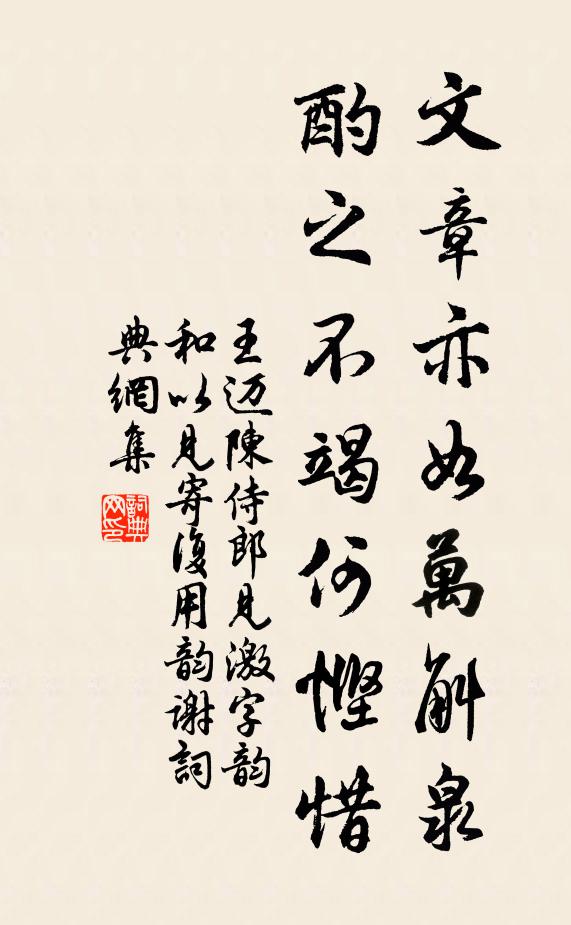 文章亦如萬斛泉
酌之不竭何慳惜
王迈陳侍郎見激字韵
和以見寄復用韵谢詞
典網集
詞典网印